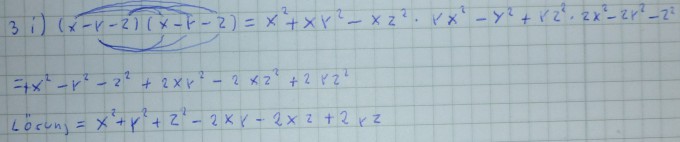 3 i) (x-r-z)(x-r-z) = x²+xr²-xz². rx²-r²+rz². zx²-zr²-z²
=+x²-r²-z²+2xr²-2xz²+2rz²
Lösung = x²+r²+z²-2xr-2xz+2rz